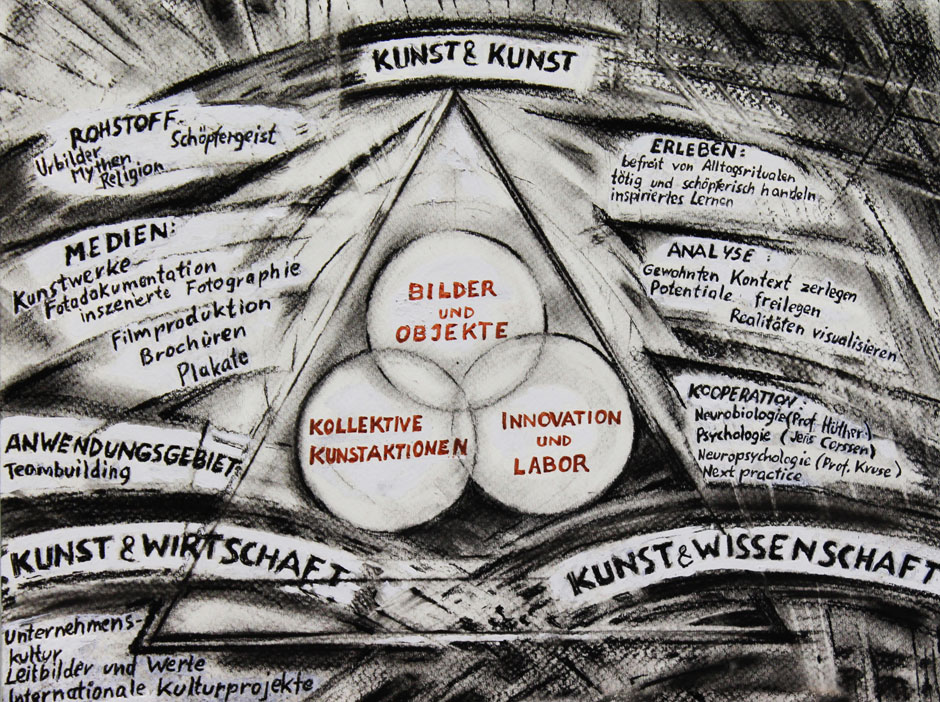 KUNST & KUNST
ROHSTOFF
Schöpfergeist
Urbilder
Mythen
Religion
MEDIEN:
Kunstwerke
Fotodokumentation
inszenierte Fotographie
Filmproduktion
Brochüren
Plakate
ANWENDUNGSGEBIET:
Teambuilding
ERLEBEN:
befreit von Alltagsritualen
tätig und schöpferisch handeln
inspiriertes Lernen
ANALYSE:
Gewohnten Kontext zerlegen
Potentiale freilegen
Realitäten visualisieren
KOOPERATION:
Neurobiologie (Prof. Hüther)
Psychologie (Jens Corssen)
Neuropsychologie (Prof. Kruse)
Next practice
BILDER
UND
OBJEKTE
KOLLEKTIVE
KUNSTAKTIONEN
INNOVATION
UND
LABOR
KUNST & WIRTSCHAFT
KUNST & WISSENSCHAFT
Unternehmens-
kultur
Leitbilder und Werte
Internationale Kulturprojekte